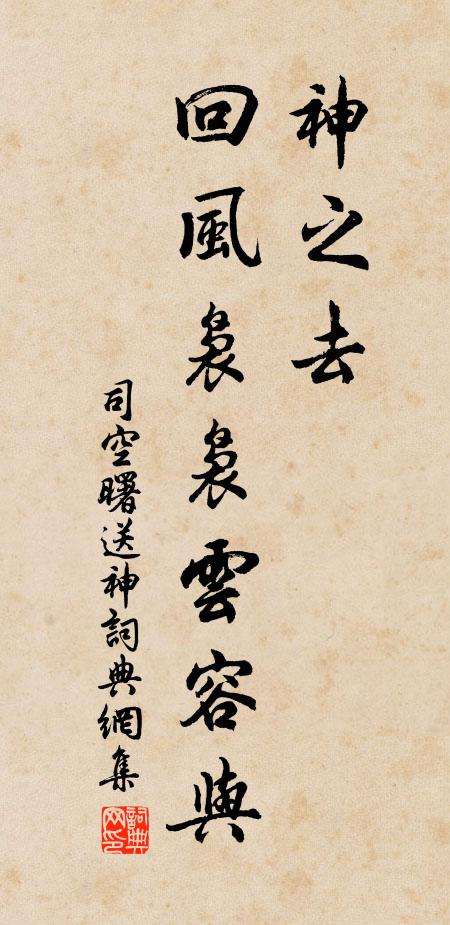 神之去
回風裊裊雲容與
司空曙送神詞典網集
詞典網印